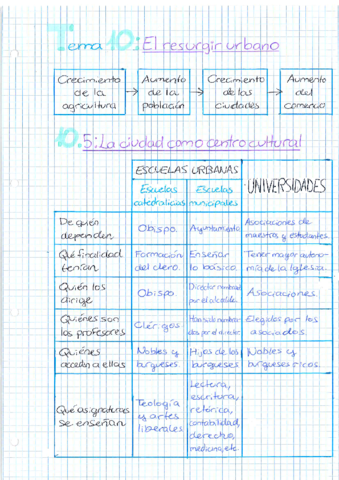 Tema 10: El resurgir urbano
Crecimiento de la agricultura → Aumento de la población → Crecimiento de las ciudades → Aumento del comercio
10.5: La ciudad como centro cultural
ESCUELAS URBANAS
UNIVERSIDADES
Escuelas catedralicias
Escuelas municipales
De quién dependen
Obispo.
Ayuntamiento.
Asociaciones de maestros y estudiantes.
Qué finalidad tenían
Formación del clero.
Enseñar lo básico.
Tener mayor autonomía de la Iglesia.
Quién los dirige
Obispo.
Director nombrado por el alcalde.
Asociaciones
Quiénes son los profesores
Clérigos
por el director
Elegidos por los asociados.
Quiénes acceden a ellas
Nobles y burgueses.
Hijos de los burgueses
Nobles y burgueses ricos.
Qué asignaturas se enseñan
Teología y artes liberales
Lectura, escritura, retórica, contabilidad, derecho, medicina, etc.